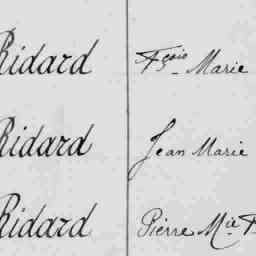 Ridard Fçois Marie
Ridard Jean Marie
Ridard Pierre Mie